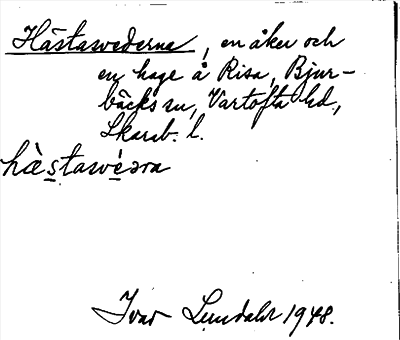 Hästawederna, en åker och
en hage å Risa, Bjur-
bäcks sn, Vartofta hd,
Skarab. l.
hàstawéǝra
Ivar Lundahl 1948.